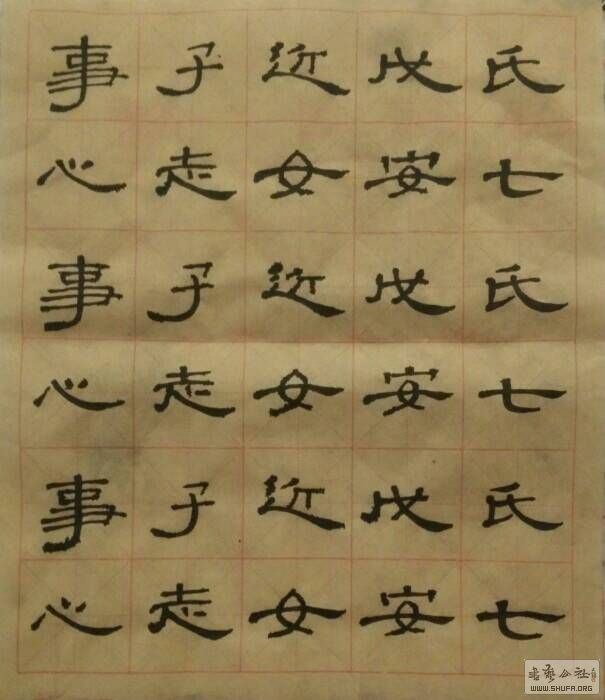 氏七氏七氏七
戊安戊安戊安
近女近女近女
子走子走子走
事心事心事心
書藝公社
WWW.SHUFA.ORG